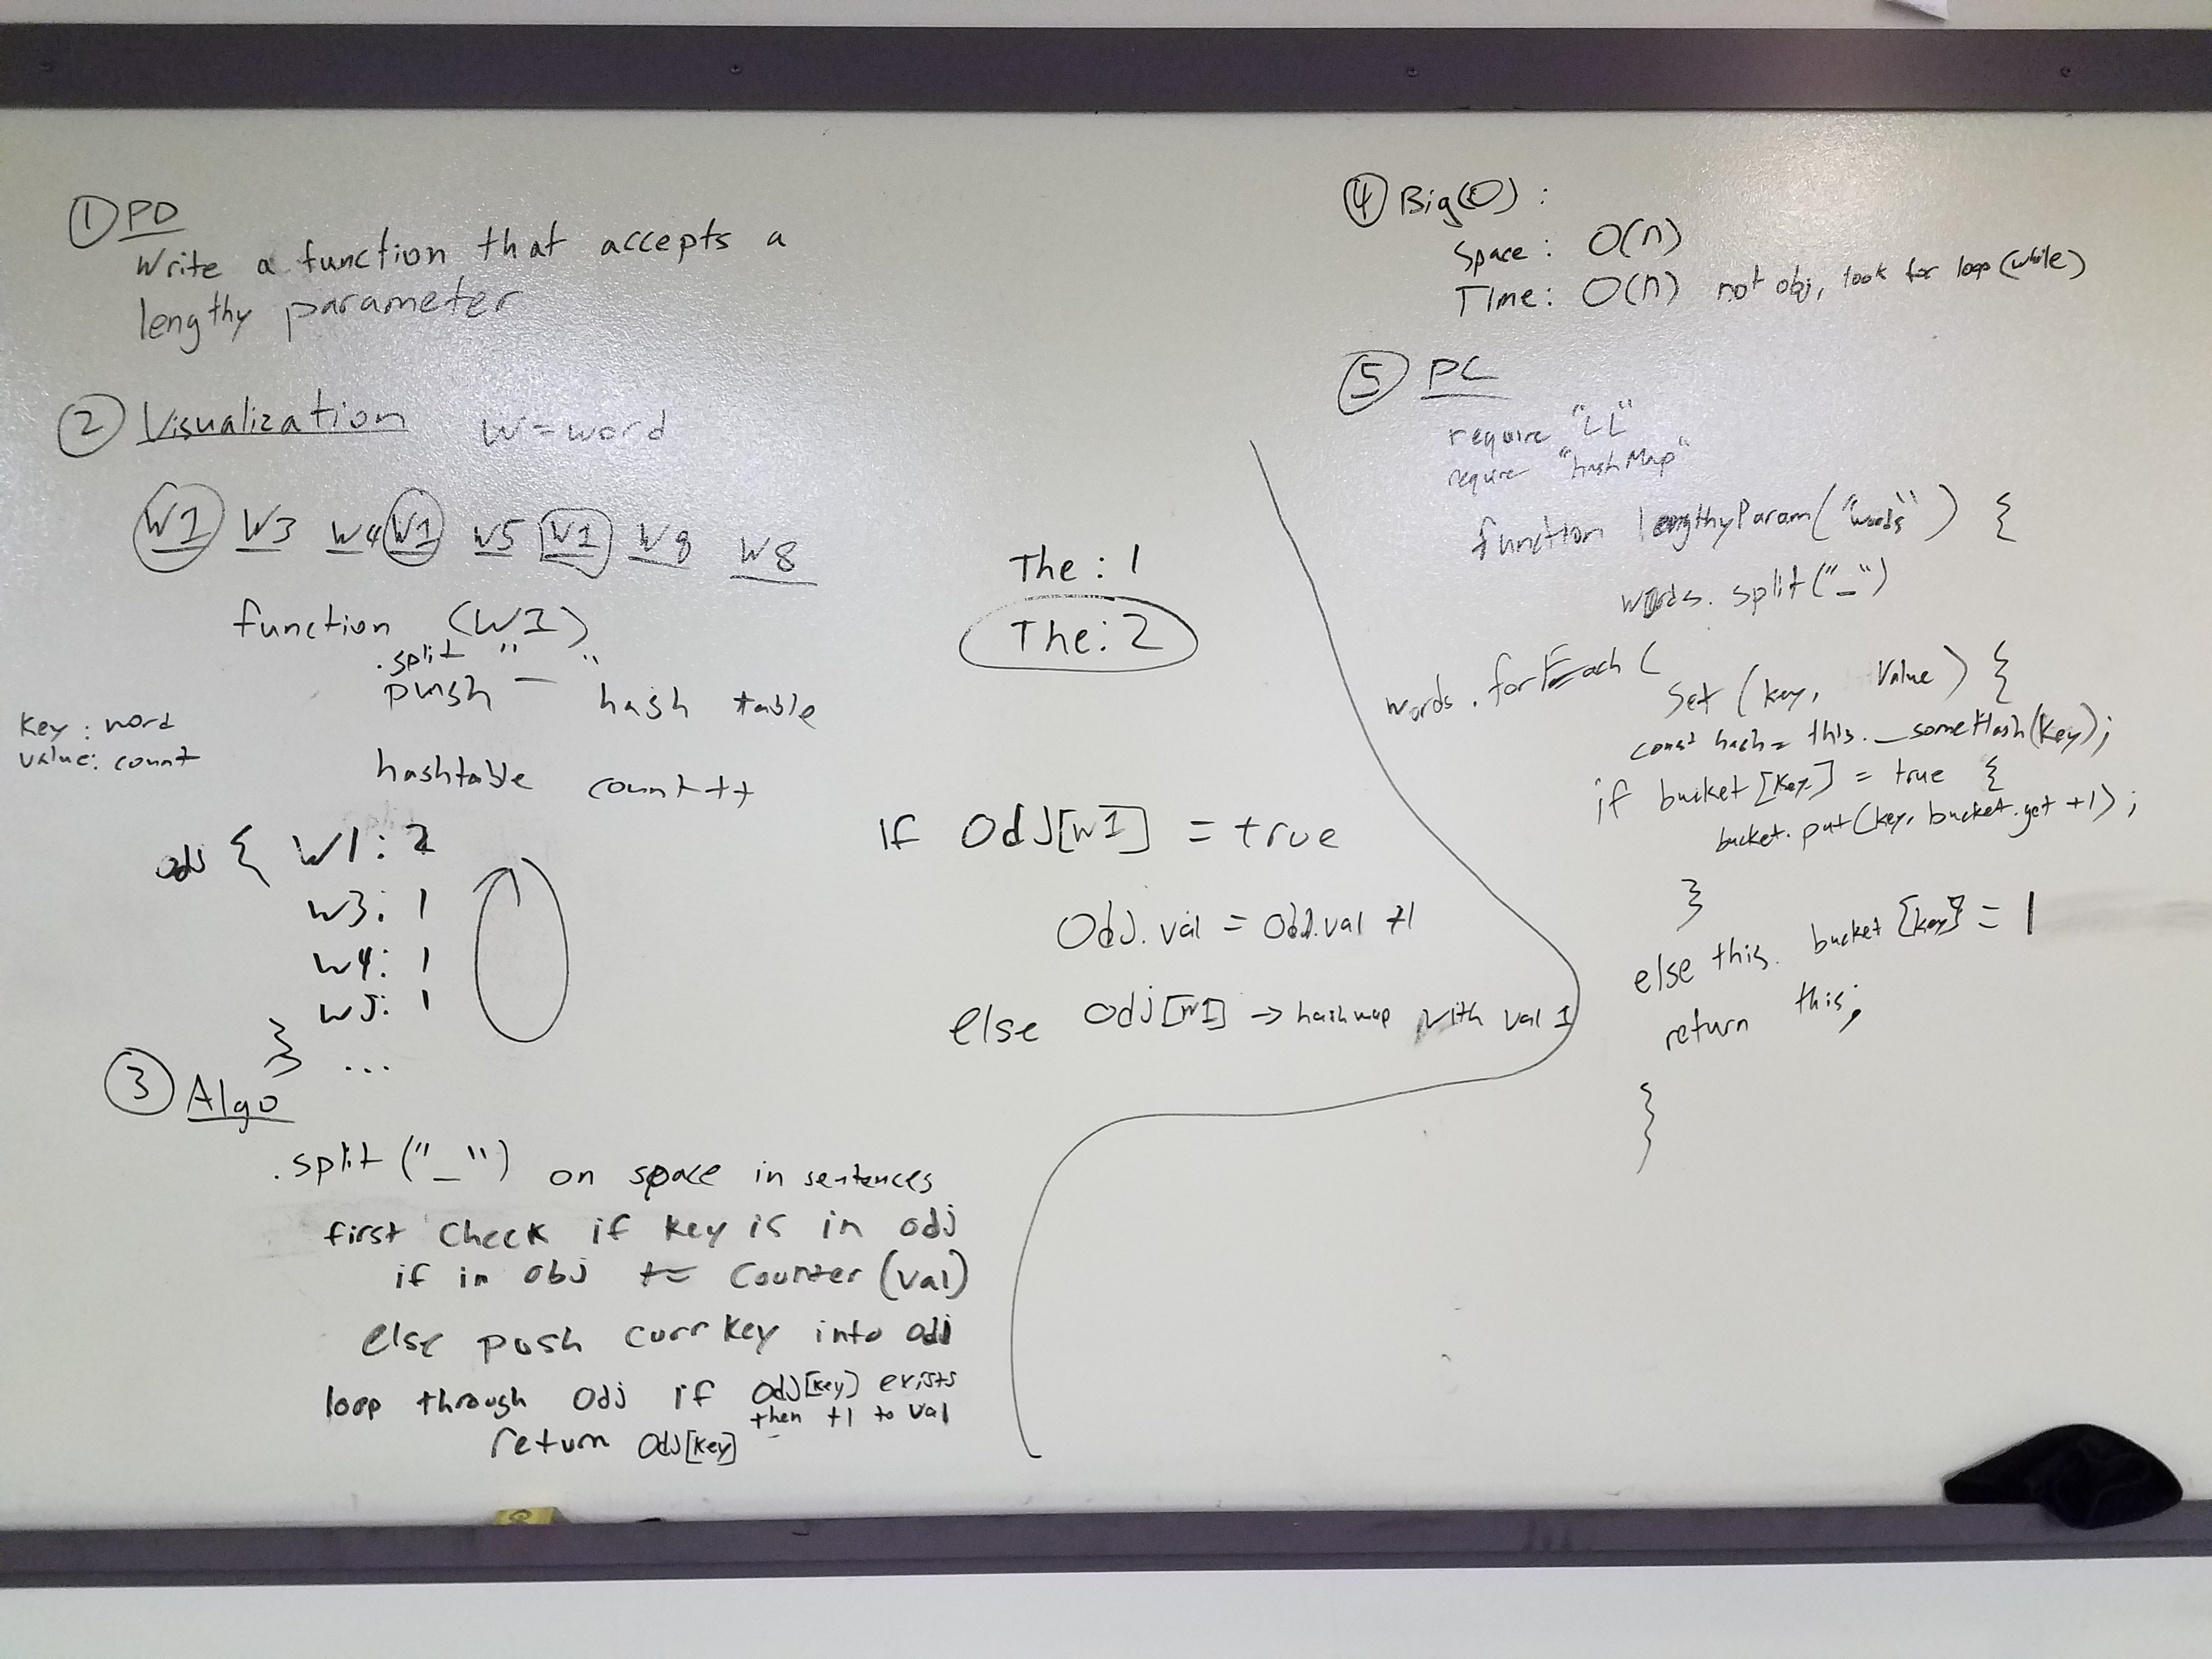 ① PD
Write a function that accepts a
lengthy parameter
② Visualization W = word
W1 W3 W4 W1 W5 W1 W8 W8
function (W1)
.split " "
push _ hash table
key : word
value: count
hashtable count++
obj { W1: 2
W3: 1
W4: 1
W5: 1
} ...
The : 1
The : 2
If Obj[W1] = true
Obj.val = Obj.val +1
else Obj[W1] -> hashmap with val 1
③ Algo
.split ("_") on space in sentences
first check if key is in obj
if in obj += Counter (val)
else push curr key into obj
loop through Obj if Obj[key] exists
then +1 to val
return Obj[key]
④ Big(O) :
Space : O(n)
TIme : O(n) not obj, look for loop (while)
⑤ PC
require "LL"
require "hashMap"
function lengthyParam("words") {
words. split("_")
words. forEach (
Set (key, Value) {
const hash = this._someHash(key);
if bucket [key] = true {
bucket. put (key, bucket.get +1);
}
else this. bucket [key] = 1
return this;
}